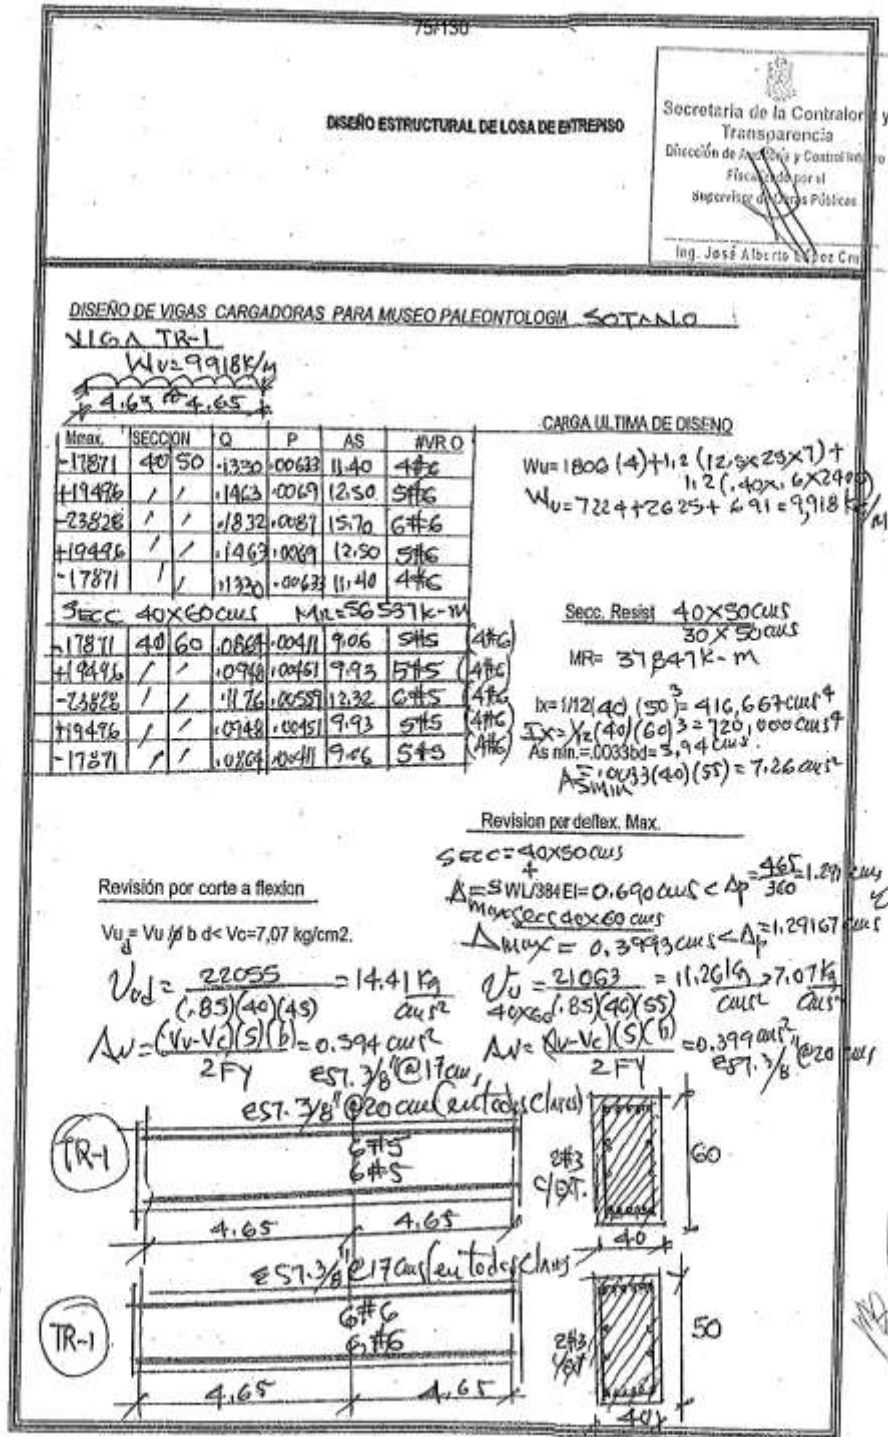 75/130
DISEÑO ESTRUCTURAL DE LOSA DE ENTREPISO
Secretaría de la Contralor y
Transparencia
Dirección de Auditoría y Control Interno
Fiscalizado por el
Supervisor de Obras Públicas
Ing. José Alberto López Cru
DISEÑO DE VIGAS CARGADORAS PARA MUSEO PALEONTOLOGIA SOTANO
VIGA TR-1
Wu=9918K/M
4.65 4.65
Mmax. SECCION Q P AS #VR O
-17871 40 50 .1330 .00633 11.40 4#6
+19496 / / .1463 .0069 12.50 5#6
-23828 / / .1832 .0087 15.70 6#6
+19496 / / .1463 .0069 12.50 5#6
-17871 / / .1330 .00633 11.40 4#6
SECC 40X60 cms MR=56537K-m
-17871 40 60 .0864 .00411 9.06 5#5 (4#6)
+19496 / / .0948 .00451 9.93 5#5 (4#6)
-23828 / / .1176 .00559 12.32 6#5 (4#6)
+19496 / / .0948 .00451 9.93 5#5 (4#6)
-17871 / / .0864 .00411 9.06 5#5 (4#6)
CARGA ULTIMA DE DISENO
Wu=1806 (4)+1,2 (12,5x25x7)+
1,2(.40x.6x2400)
Wu=7224+2625+691=9,918 K/M
Secc. Resist 40X50cms
30X50cms
MR= 37847K-m
Ix=1/12(40)(50)3=416,667cms4
Ix=1/12(40)(60)3=720,000cms4
As min.=.0033bd=5,94cms.
Asmin=.0033(40)(55)=7.26cms2
Revision por deflex. Max.
SECC=40X50cms
Δmax=5WL4/384EI=0.690cms<Δp=465/360=1.291cms
Secc 40x60 cms
Δmax=0.3993cms<Δp=1.29167cms
Revisión por corte a flexion
Vud=Vu/ø b d< Vc=7,07 kg/cm2.
Vud=22055/(.85)(40)(45)=14.41Kg/cms2
Vu=21063/(.85)(40)(55)=11.26Kg/cms2>7.07Kg/cms2
40X60
Av=(Vu-Vc)(S)(b)/2FY=0.594cms2
EST. 3/8"@17cms
Av=(Vu-Vc)(S)(b)/2FY=0.399cms2
EST. 3/8"@20cms
EST. 3/8"@20cm(en todos Claros)
TR-1
6#5
6#5
4.65 4.65
2#3
C/EXT.
60
40
EST. 3/8"@17cms(en todos Claros
TR-1
6#6
6#6
4.65 4.65
2#3
C/EXT
50
40